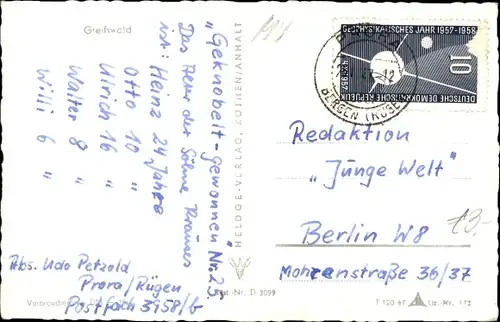 Greifswald
„Geknobelt-gewonnen" Nr. 23.
Das Alter der Söhne Krämers
ist: Heinz 24 Jahre
Otto 10 "
Ulrich 16 "
Walter 8 "
Willi 6 "
Abs. Udo Petzold
Prora/Rügen
Postfach 3958/b
HELDGE-VERLAG, KÖTHEN/ANHALT
Best.-Nr. D 3099
GEOPHYSIKALISCHES JAHR 1957-1958
10
4.X.1957
DEUTSCHE DEMOKRATISCHE REPUBLIK
BERGEN (RÜGEN)
Redaktion
„Junge Welt"
Berlin W8
Mohrenstraße 36/37
13.-
T 120-57
Liz.-Nr. 175